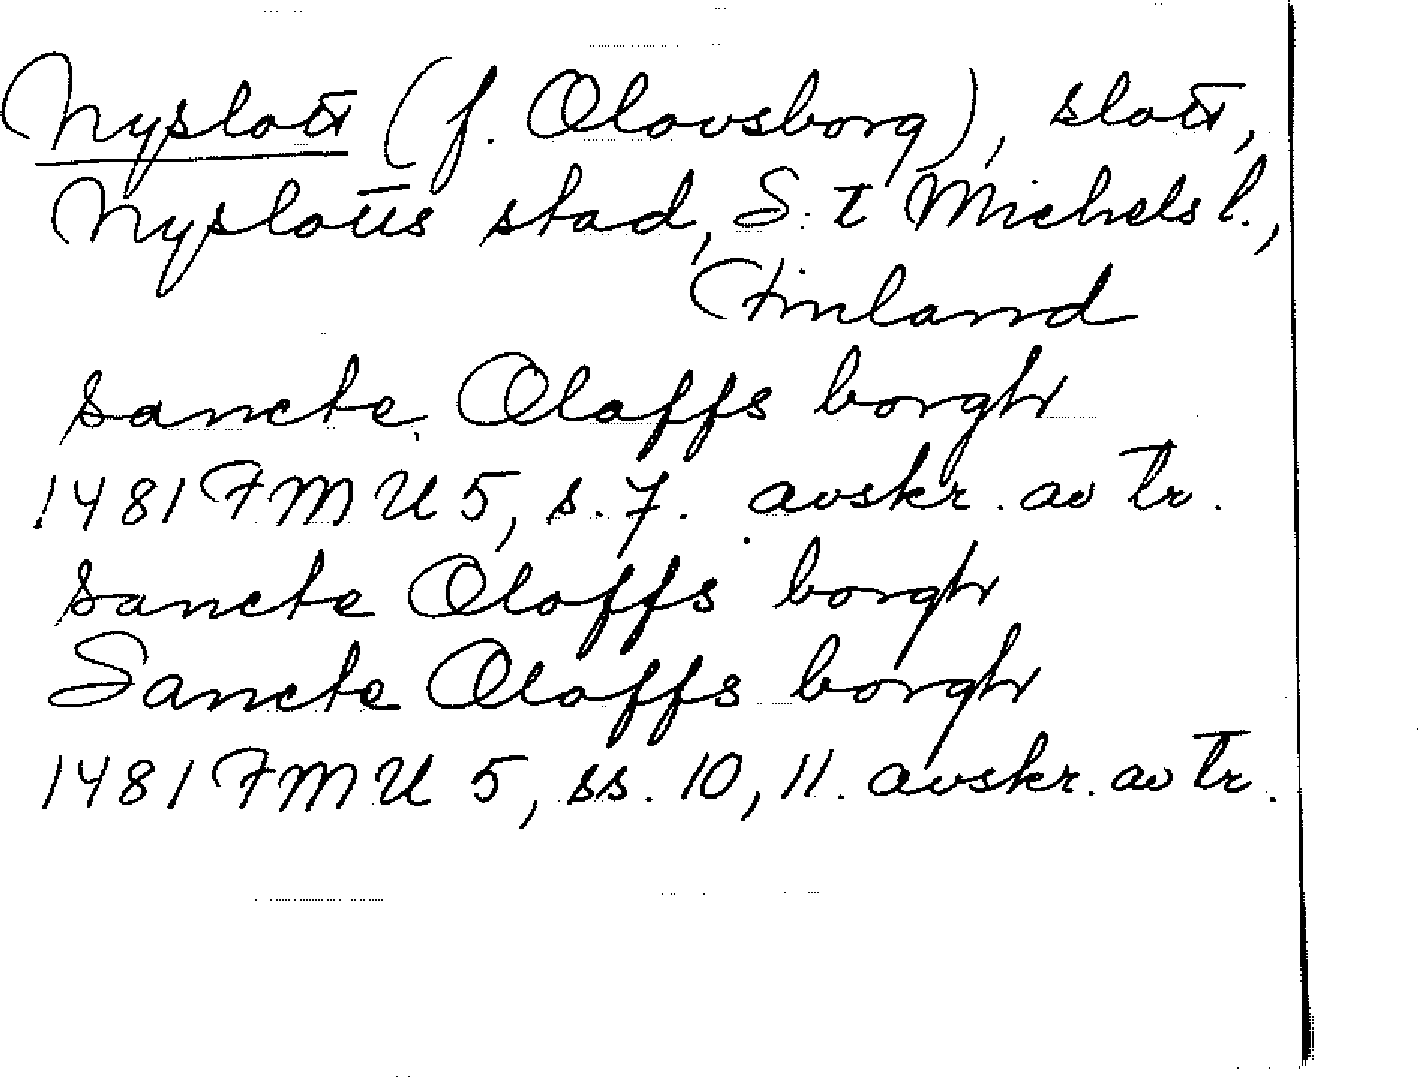 Nyslott (f. Olovsborg), slott,
Nyslotts stad, S:t Michels l.,
Finland
Sancte Olaffs borgh
1481 FMU 5, s. 7. avskr. av tr.
Sancte Oloffs borgh
Sancte Olaffs borgh
1481 FMU 5, ss. 10, 11. avskr. av tr.